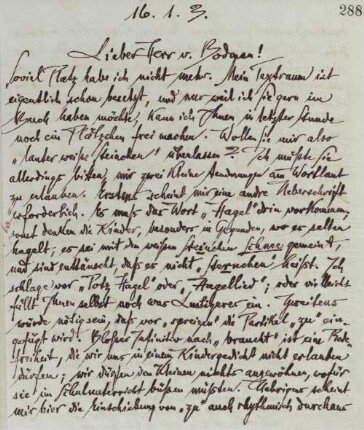 16. 1. 3.
288
Lieber Herr v. Bodman!
Soviel Platz habe ich nicht mehr. Mein Textraum ist
eigentlich schon besetzt, und nur weil ich Sie gern im
Buch haben möchte, kann ich Ihnen in letzter Stunde
noch ein Plätzchen frei machen. Wollen Sie mir also
"lauter weiße Steinchen" überlassen? Ich müßte Sie
allerdings bitten, mir zwei kleine Aenderungen am Wortlaut
zu erlauben. Erstens scheint mir eine andre Ueberschrift
erforderlich. Es muß das Wort "Hagel" drin vorkommen,
sonst denken die Kinder, besonders in Gegenden, wo es selten
hagelt, es sei mit den weißen Steinchen Schnee gemeint,
und sind enttäuscht, daß es nicht "Sternchen" heißt. Ich
schlage vor "Potz Hagel" oder "Hagellied"; oder vielleicht
fällt Ihnen selbst noch was Lustigeres ein. Zweitens
würde nötig sein, daß vor "spreizen" die Partikel "zu" ein-
gefügt wird. Bloßer Infinitiv nach "braucht" ist eine
Freiheit, die wir uns in einem Kindergedicht nicht erlauben
dürfen; wir dürfen den Kleinen nichts angewöhnen, wofür
sie im Schulunterricht büßen müssten. Uebrigens scheint
mir hier die Einschiebung von "zu" auch rhythmisch durchaus